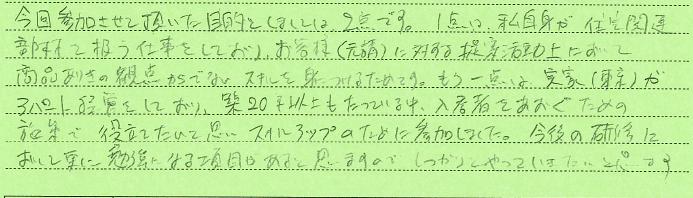 今回参加させて頂いた目的としましては2点です。1点は、私自身が住宅関連
部材を扱う仕事をしており、お客様(元請)に対する提案活動上において
商品ありきの観点からでないスキルを身につけるためです。もう一点は、実家(東京)が
アパート経営をしており、築20年以上もたっている中、入居者をあおぐための
施策で役立てたいと思いスキルアップのために参加しました。今後の研修に
おいて更に勉強になる項目があると思いますので しっかりとやっていきたいと思います